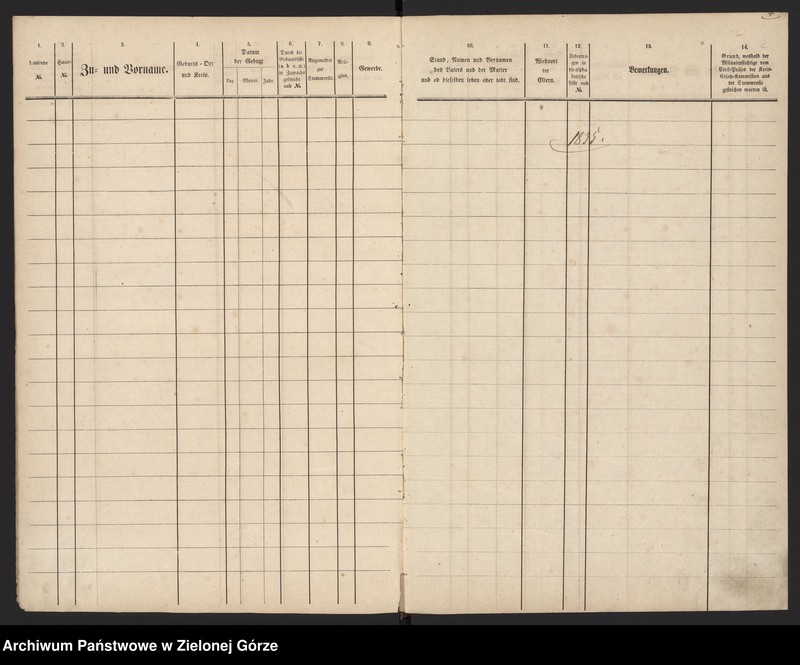 1.
Laufende
№.
2.
Haus-
№.
3.
Zu- und Vorname.
4.
Geburts-Ort
und Kreis.
5.
Datum
der Geburt
Tag. Monat. Jahr.
6.
Durch die
Geburtsliste
in Zuwachs
gebracht
sub №.
7.
Angemeldet
zur
Stammrolle.
8.
Reli-
gion.
9.
Gewerbe.
10.
Stand, Namen und Vornamen
des Vaters und der Mutter
und ob dieselben leben oder todt sind.
11.
Wohnort
der
Eltern.
12.
gen in
die alpha-
betische
Liste sub
№.
13.
Bemerkungen.
14.
Grund, weshalb der
Militairpflichtige vom
Civil-Präses der Kreis-
Ersatz-Kommission aus
der Stammrolle
gestrichen worden ist.
1835.
Archiwum Państwowe w Zielonej Górze